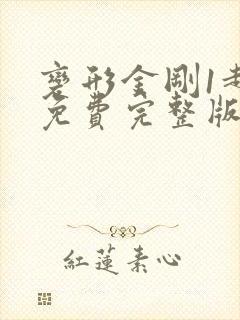 变形金剛1走
免費完整版
紅蓮素心